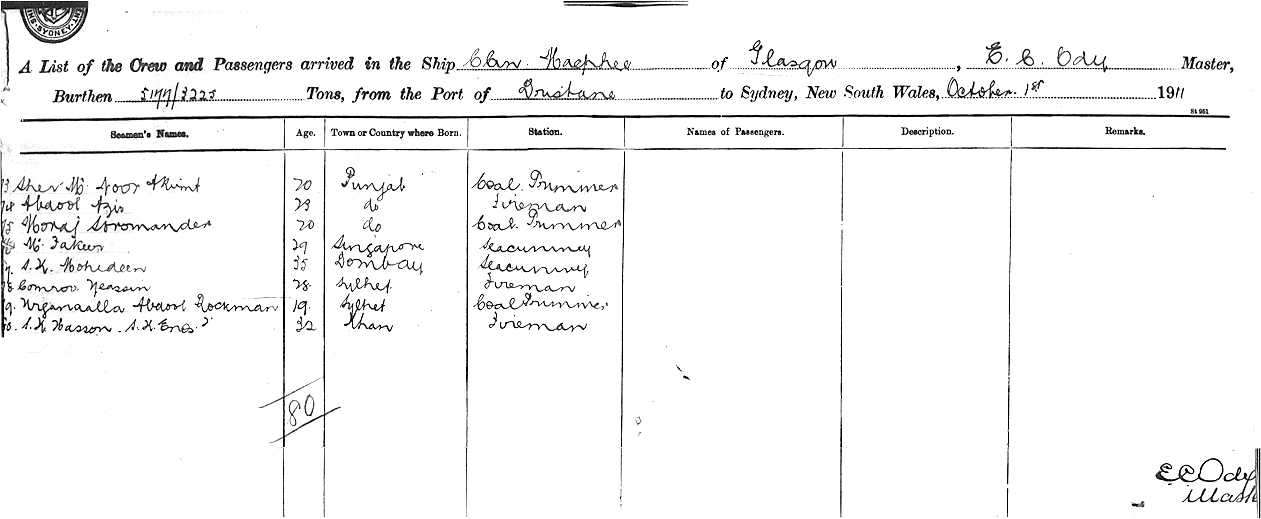 SYDNEY
A List of the Crew and Passengers arrived in the Ship Clan Macphee of Glasgow, E. C. Ody Master,
Burthen 5177/3225 Tons, from the Port of Brisbane to Sydney, New South Wales, October 1st 1911
St 951
Seamen's Names. Age. Town or Country where Born. Station. Names of Passengers. Description. Remarks.
73 Sher Md. Noor 20 Punjab Coal Trimmer
74 Abdool Azis 23 do Fireman
75 20 do Coal Trimmer
M. Fakeer 29 Singapore Seacunney
S.K. Mohideen 35 Bombay Seacunney
78. Comrov. 28. Sylhet Fireman
79. Abdool Rockman 19. Sylhet Coal Trimmer
80. S.K. Hasson. S.K. 32 Khan Fireman
80
E C Ody
Mast